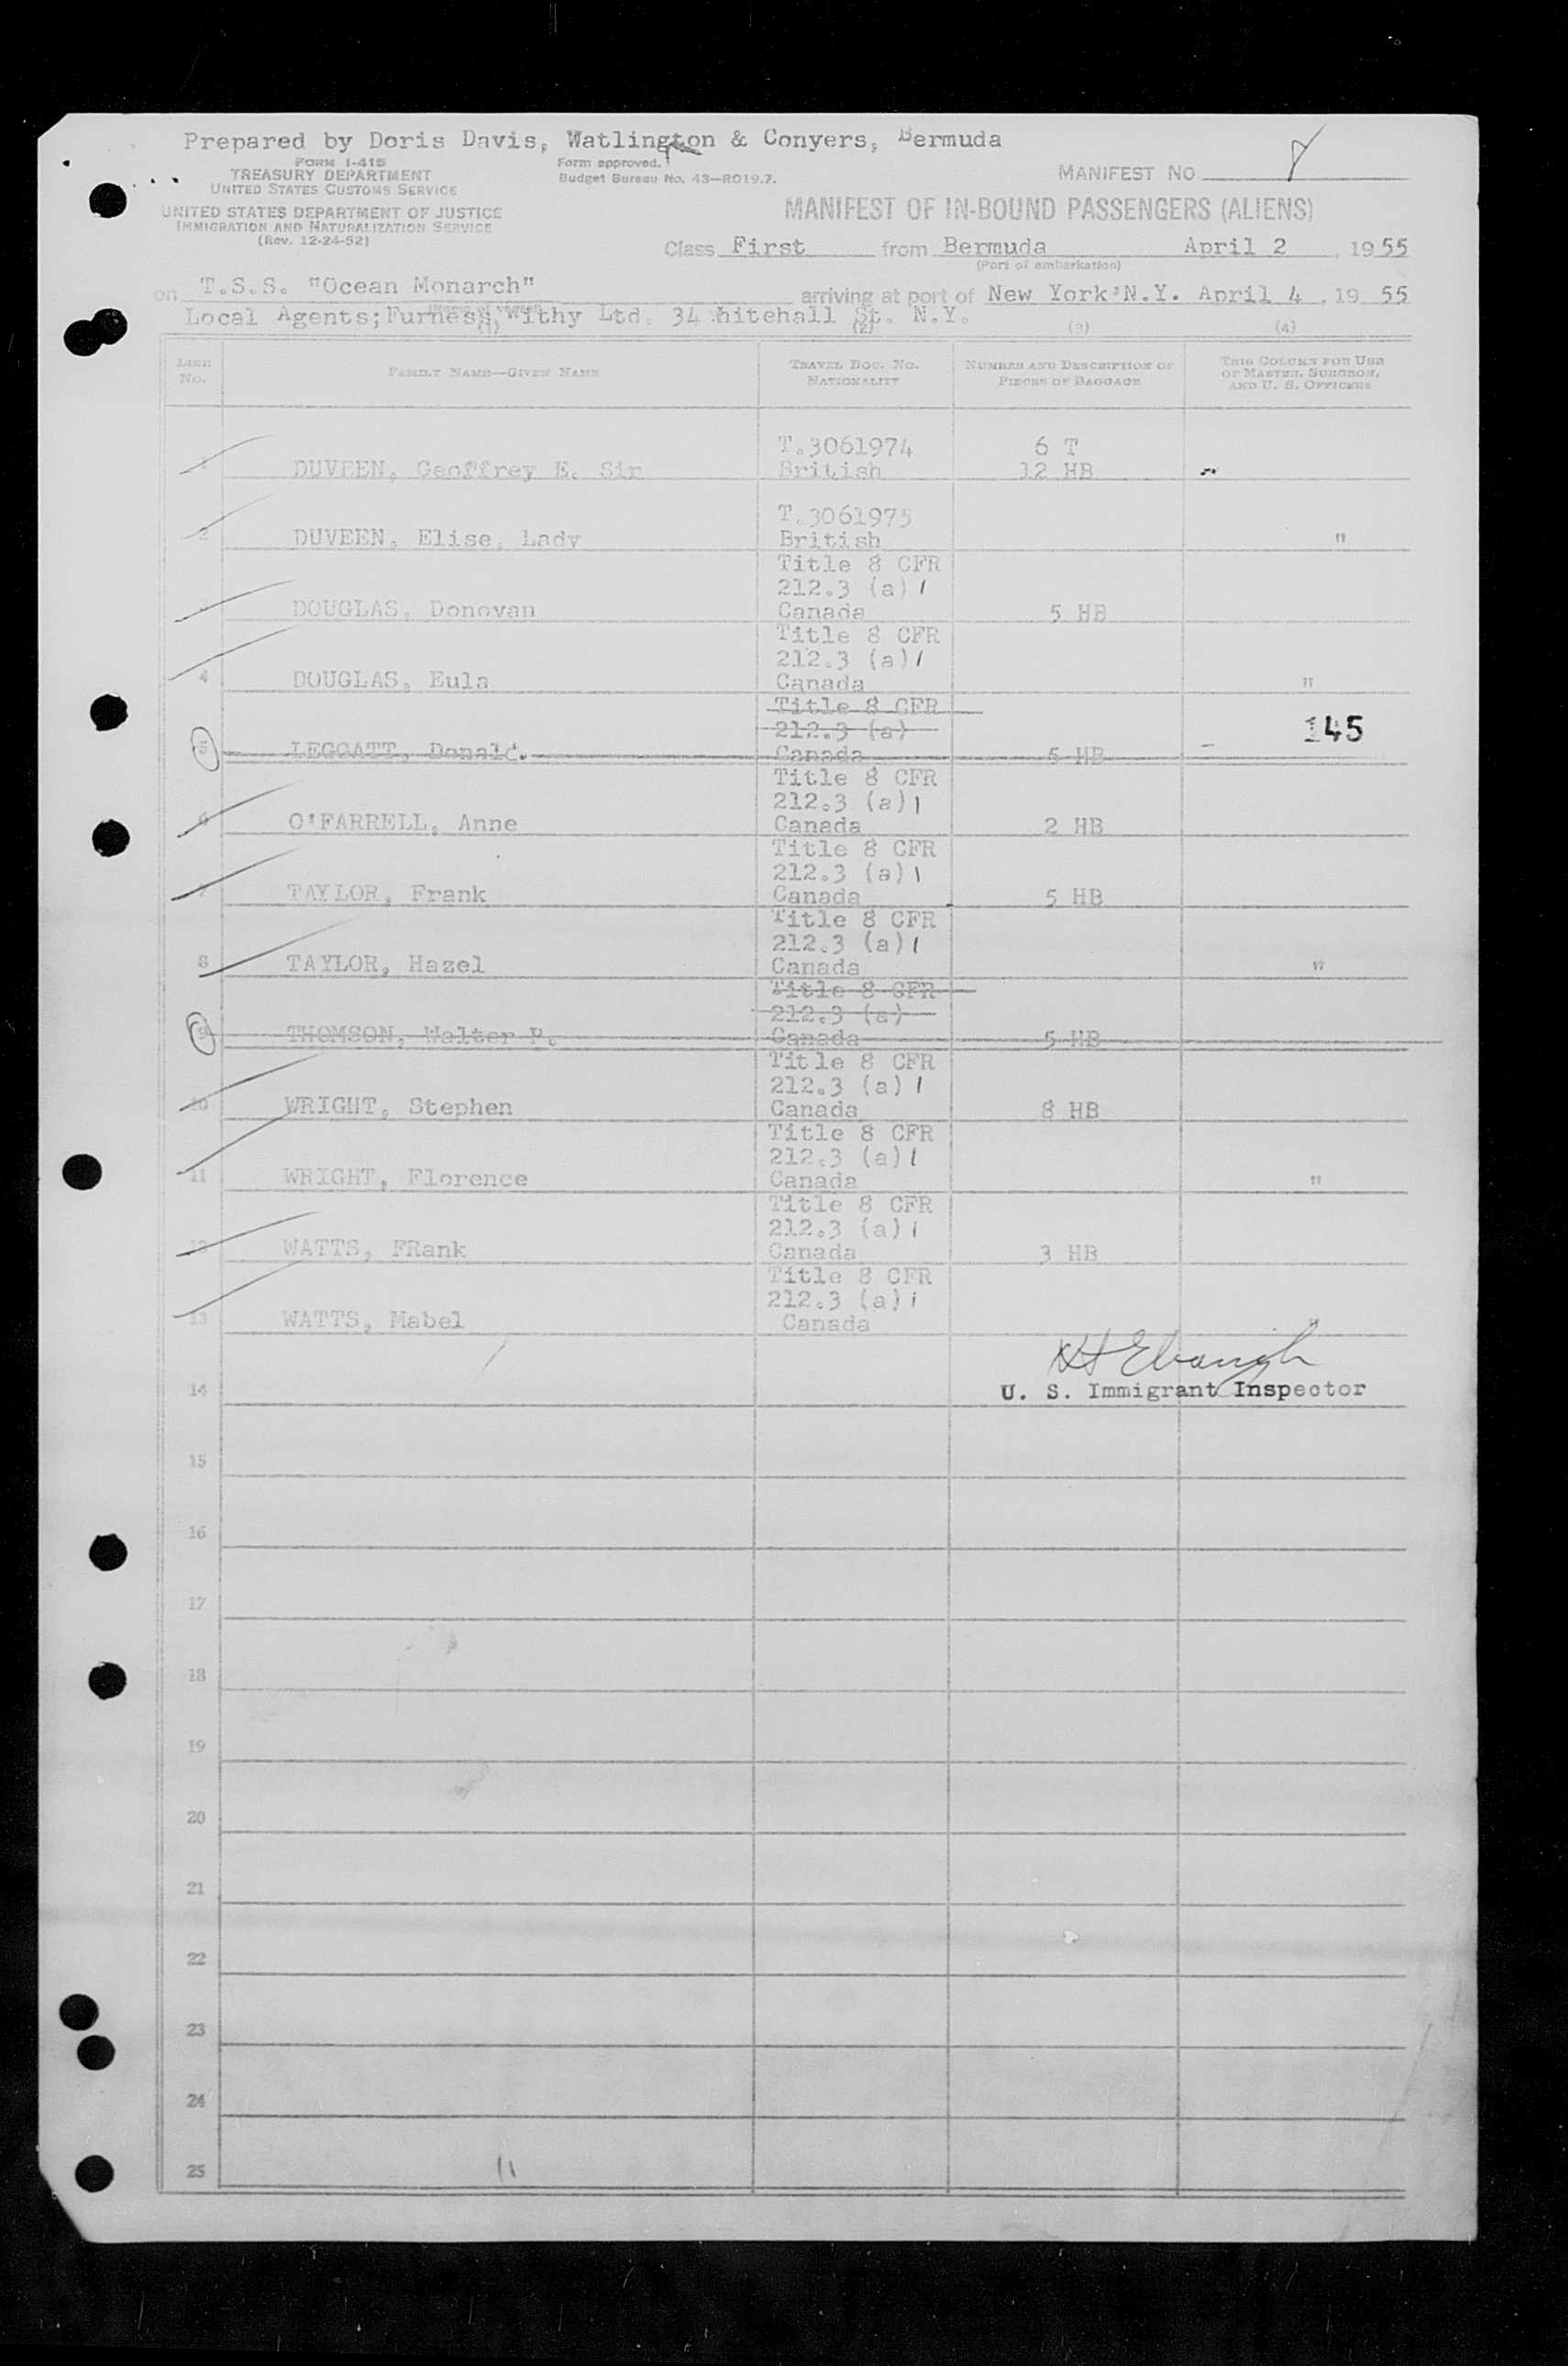 Prepared by Doris Davis, Watlington & Conyers, Bermuda
FORM I-415
TREASURY DEPARTMENT
UNITED STATES CUSTOMS SERVICE
Form approved.
Budget Bureau No. 43—RO19.7.
MANIFEST NO
UNITED STATES DEPARTMENT OF JUSTICE
IMMIGRATION AND NATURALIZATION SERVICE
(Rev. 12-24-52)
MANIFEST OF IN-BOUND PASSENGERS (ALIENS)
Class First from Bermuda April 2, 1955
(Port of embarkation)
on T.S.S. "Ocean Monarch" arriving at port of New York,N.Y. April 4, 19 55
Local Agents;Furness Withy Ltd. 34 hitehall St. N.Y.
(1) (2) (3) (4)
LINE No.
FAMILY NAME—GIVEN NAME
TRAVEL DOC. NO. NATIONALITY
NUMBER AND DESCRIPTION OF PIECES OF BAGGAGE
THIS COLUMN FOR USE OF MASTER, SURGEON, AND U. S. OFFICERS
T.3061974 6 T
1 DUVEEN, Geoffrey E. Sir British 12 HB
T.3061975
2 DUVEEN, Elise, Lady British "
Title 8 CFR
212.3 (a) 1
3 DOUGLAS, Donovan Canada 5 HB
Title 8 CFR
212.3 (a) 1
4 DOUGLAS, Eula Canada "
Title 8 CFR
212.3 (a) 145
5 LEGGATT, Donald. Canada 5 HB
Title 8 CFR
212.3 (a) 1
6 O'FARRELL, Anne Canada 2 HB
Title 8 CFR
212.3 (a) 1
7 TAYLOR, Frank Canada 5 HB
Title 8 CFR
212.3 (a) 1
8 TAYLOR, Hazel Canada "
Title 8 CFR
212.3 (a)
9 THOMSON, Walter P. Canada 5 HB
Title 8 CFR
212.3 (a) 1
10 WRIGHT, Stephen Canada 8 HB
Title 8 CFR
212.3 (a) 1
11 WRIGHT, Florence Canada "
Title 8 CFR
212.3 (a) 1
12 WATTS, FRank Canada 3 HB
Title 8 CFR
212.3 (a) 1
13 WATTS, Mabel Canada "
14 U. S. Immigrant Inspector
15
16
17
18
19
20
21
22
23
24
25 11